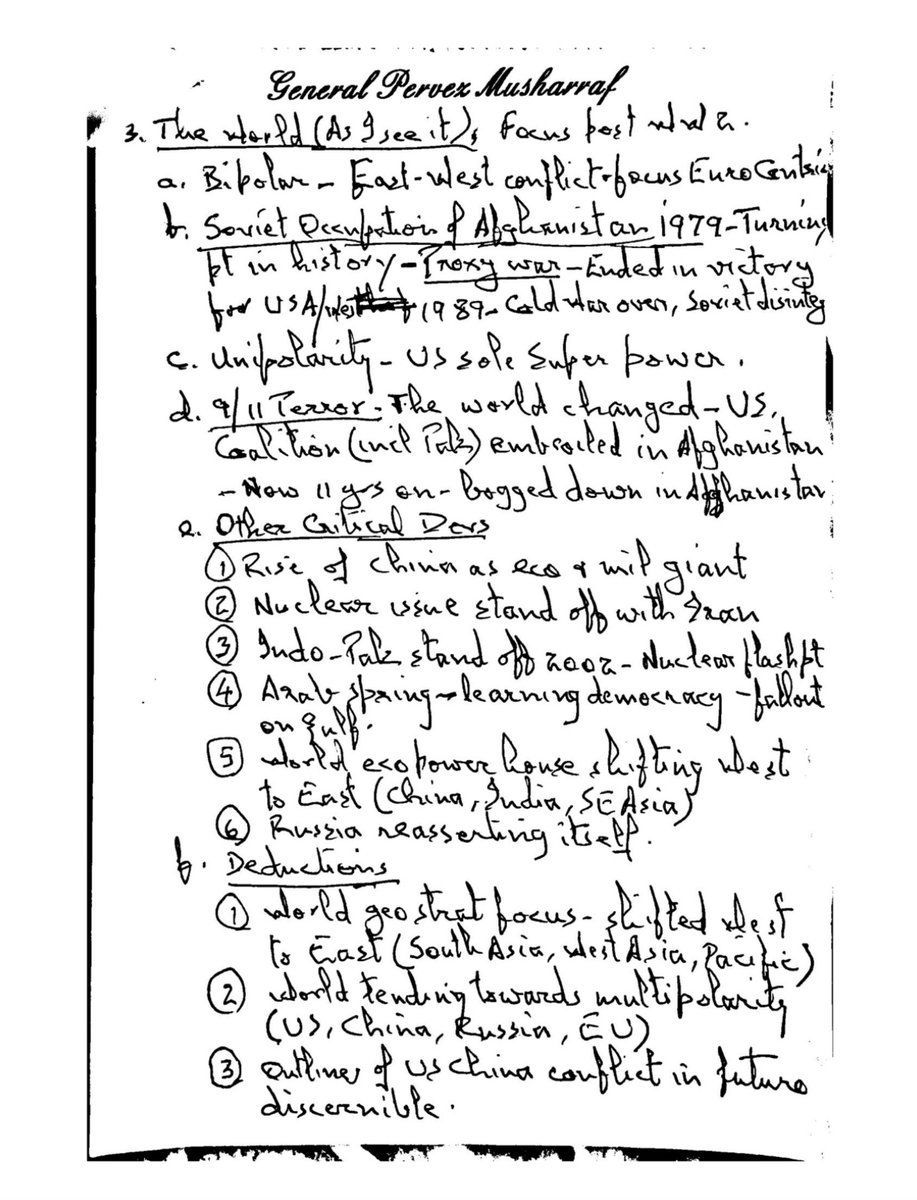 General Pervez Musharraf
3. The World (As I see it), Focus post WW 2.
a. Bipolar – East-West conflict – focus Euro Centric
b. Soviet Occupation of Afghanistan 1979 – Turning
pt in history – Proxy war – Ended in victory
for USA/West 1989 – Cold War over, Soviet disinteg
c. Unipolarity – US sole Super power.
d. 9/11 Terror – The world changed – US,
Coalition (incl Pak) embroiled in Afghanistan
– Now 11 yrs on – bogged down in Afghanistan
e. Other Critical Devs
① Rise of China as eco & mil giant
② Nuclear issue stand off with Iran
③ Indo-Pak stand off 2002 – Nuclear flash pt
④ Arab spring – learning democracy – fallout
on gulf.
⑤ World eco power house shifting West
to East (China, India, SE Asia)
⑥ Russia reasserting itself.
f. Deductions
① World geo strat focus – shifted West
to East (South Asia, West Asia, Pacific)
② World tending towards multipolarity
(US, China, Russia, EU)
③ Outlines of US China conflict in future
discernible.